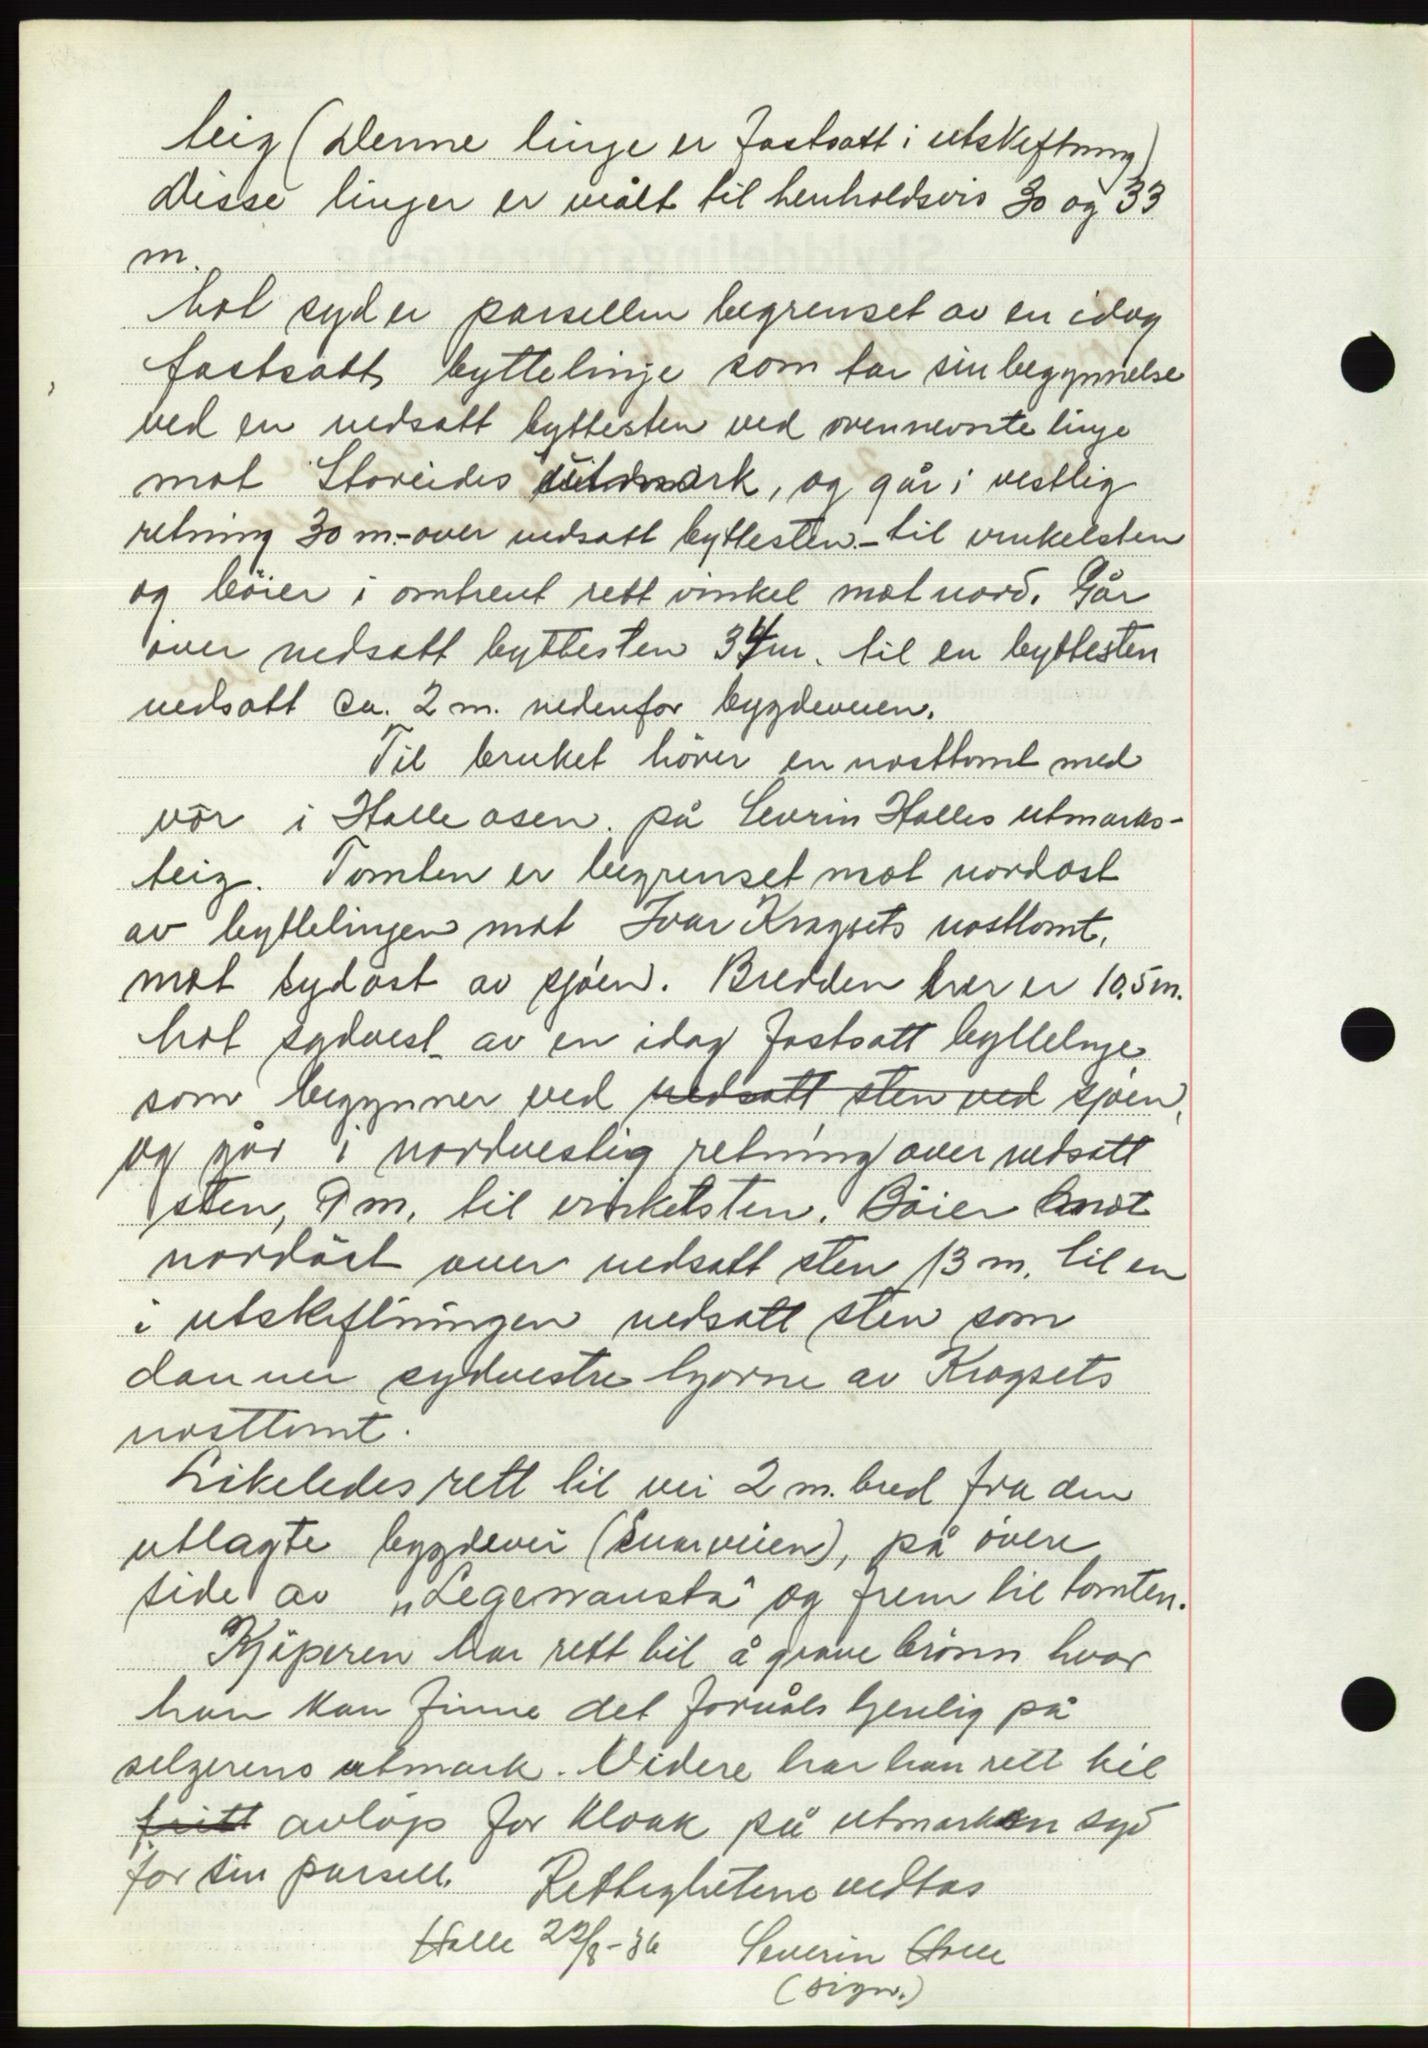 teig (Denne linje er fastsatt i utskiftning)
Disse linjer er målt til henholdsvis 30 og 33
m.
Mot syd er parsellen begrenset av en idag
fastsatt byttelinje som tar sin begynnelse
ved en nedsatt byttesten ved ovennevnte linje
mot Storeides utmark, og går i vestlig
retning 30 m.- over nedsatt byttesten.- til vinkelsten
og böier i omtrent rett vinkel mot nord. Går
över nedsatt byttesten 34 m. til en byttesten
nedsatt ca. 2 m. nedenfor bygdeveien.
Til bruket hörer en nosttomt med
vör i Halleosen. på Severin Halles utmarks-
teig. Tomten er begrenset mot nordost
av byttelinjen mot Ivar Kragsets nosttomt,
mot sydöst av sjöen. Bredden her er 10,5 m.
Mot sydvest av en idag fastsatt byttelinje
som begynner ved nedsatt sten ved sjöen,
og går i nordvestlig retning over nedsatt
sten, 9 m. til vinkelsten. Böier mot
nordöst over nedsatt sten 13 m. til en
i utskiftningen nedsatt sten som
danner sydvestre hjörne av Kragsets
nosttomt.
Likeledes rett til vei 2 m. bred fra den
utlagte bygdevei, på övere
side av og frem til tomten.
Kjöperen har rett til å grave brönn hvor
han kan finne det formålstjenlig på
selgerens utmark. Videre har han rett til
fritt avlöp for kloak på utmarken syd
for sin parsell. Rettighetene vedtas
Halle 22/8-36 Severin Halle
(sign.)